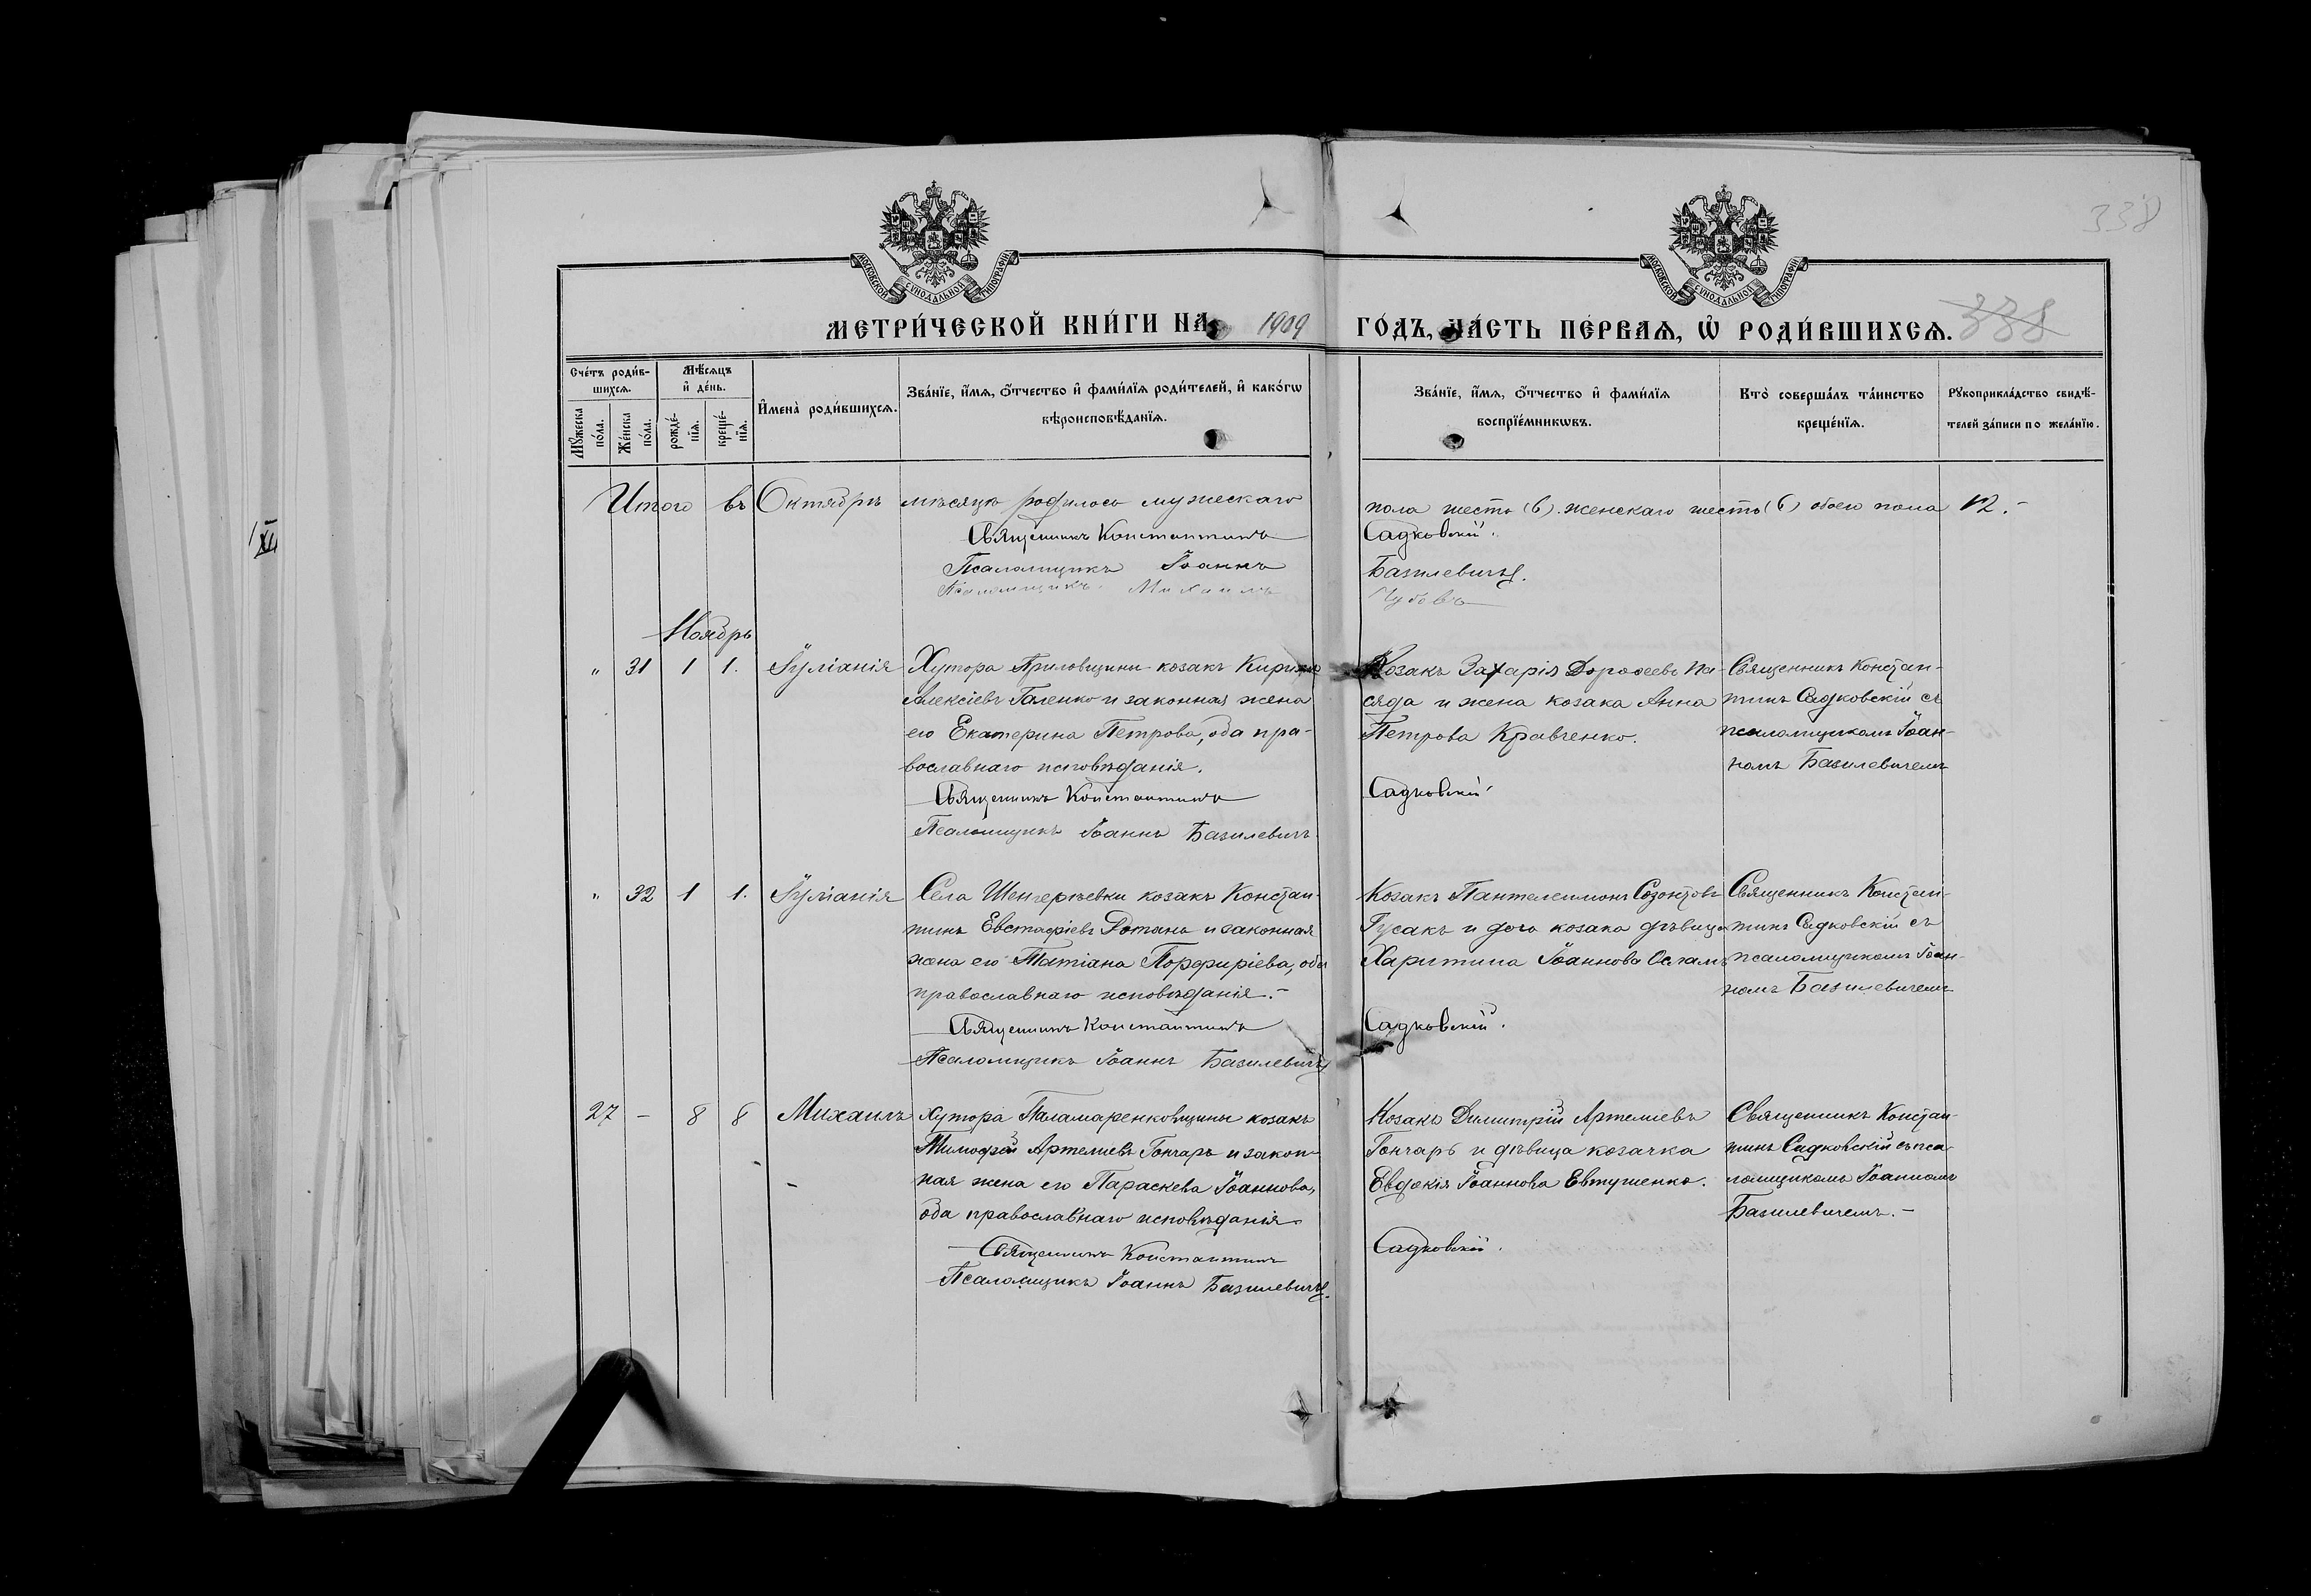 338
МОСКОВСКОЙ СУНОДАЛЬНОЙ ТИПОГРАФІИ
МОСКОВСКОЙ СУНОДАЛЬНОЙ ТИПОГРАФІИ
МЕТРИ́ЧЕСКОЙ КНИ́ГИ НА 1909 ГО́ДЪ, ЧА́СТЬ ПЕ́РВАѦ, Ѡ҆ РОДИ́ВШИХСѦ. 338
Сче́тъ роди́в-
шихсѧ.
Мꙋ́жеска по́ла.
Же́нска по́ла.
Мѣ́сѧцъ
и҆ де́нь.
рожде́-
нїѧ.
креще́-
нїѧ.
И҆мена̀ роди́вшихсѧ.
Зва́нїе, и҆́мѧ, ѻ҆́тчество и҆ фами́лїѧ роди́телей, и҆ како́гѡ
вѣроисповѣ́данїѧ.
Зва́нїе, и҆́мѧ, ѻ҆́тчество и҆ фами́лїѧ
воспрїе́мникѡвъ.
Кто̀ соверша́лъ та́инство
креще́нїѧ.
Рꙋкоприкла́дство свидѣ́-
телей за́писи по жела́нїю.
Итого въ Октябрѣ мѣсяцѣ родилось мужескаго пола шесть (6). женскаго шесть (6) обоего пола 12.-
Священникъ Константинъ Садковскій.
Псаломщикъ Іоаннъ Базилевичъ.
Псаломщикъ Михаилъ Чубовъ
Ноябрь
" 31 1 1. Іуліанія Хутора козакъ
Алексіевъ Галенко и законная жена
его Екатерина Петрова, оба пра-
вославнаго исповѣданія.
Священникъ Константинъ Садковскій
Псаломщикъ Іоаннъ Базилевичъ
Козакъ Захарія Дороѳеевъ Па-
сяда и жена козака Анна
Петрова Кравченко.
Священникъ Констан-
тинъ Садковскій съ
псаломщикомъ Іоан-
номъ Базилевичемъ
" 32 1 1. Іуліанія Села Шенгерѣевки козакъ Констан-
тинъ Евстафіевъ Ротань и законная
жена его Татіана Порфиріева, оба
православнаго исповѣданія.-
Священникъ Константинъ Садковскій.
Псаломщикъ Іоаннъ Базилевичъ
Козакъ Пантелеимонъ Созонтовъ
Гусакъ и дочь козака дѣвица
Харитина Іоаннова
Священникъ Констан-
тинъ Садковскій съ
псаломщикомъ Іоан-
номъ Базилевичемъ
27 - 8 8 Михаилъ Хутора Паламаренковщины козакъ
Тимофей Артемиевъ Гончаръ и закон-
ная жена его Параскева Іоаннова,
оба православнаго исповѣданія
Священникъ Константинъ Садковскій.
Псаломщикъ Іоаннъ Базилевичъ.
Козакъ Димитрій Артемиевъ
Гончаръ и дѣвица козачка
Евдокія Іоаннова Евтушенко.
Священникъ Констан-
тинъ Садковскій съ пса-
ломщикомъ Іоанномъ
Базилевичемъ.-